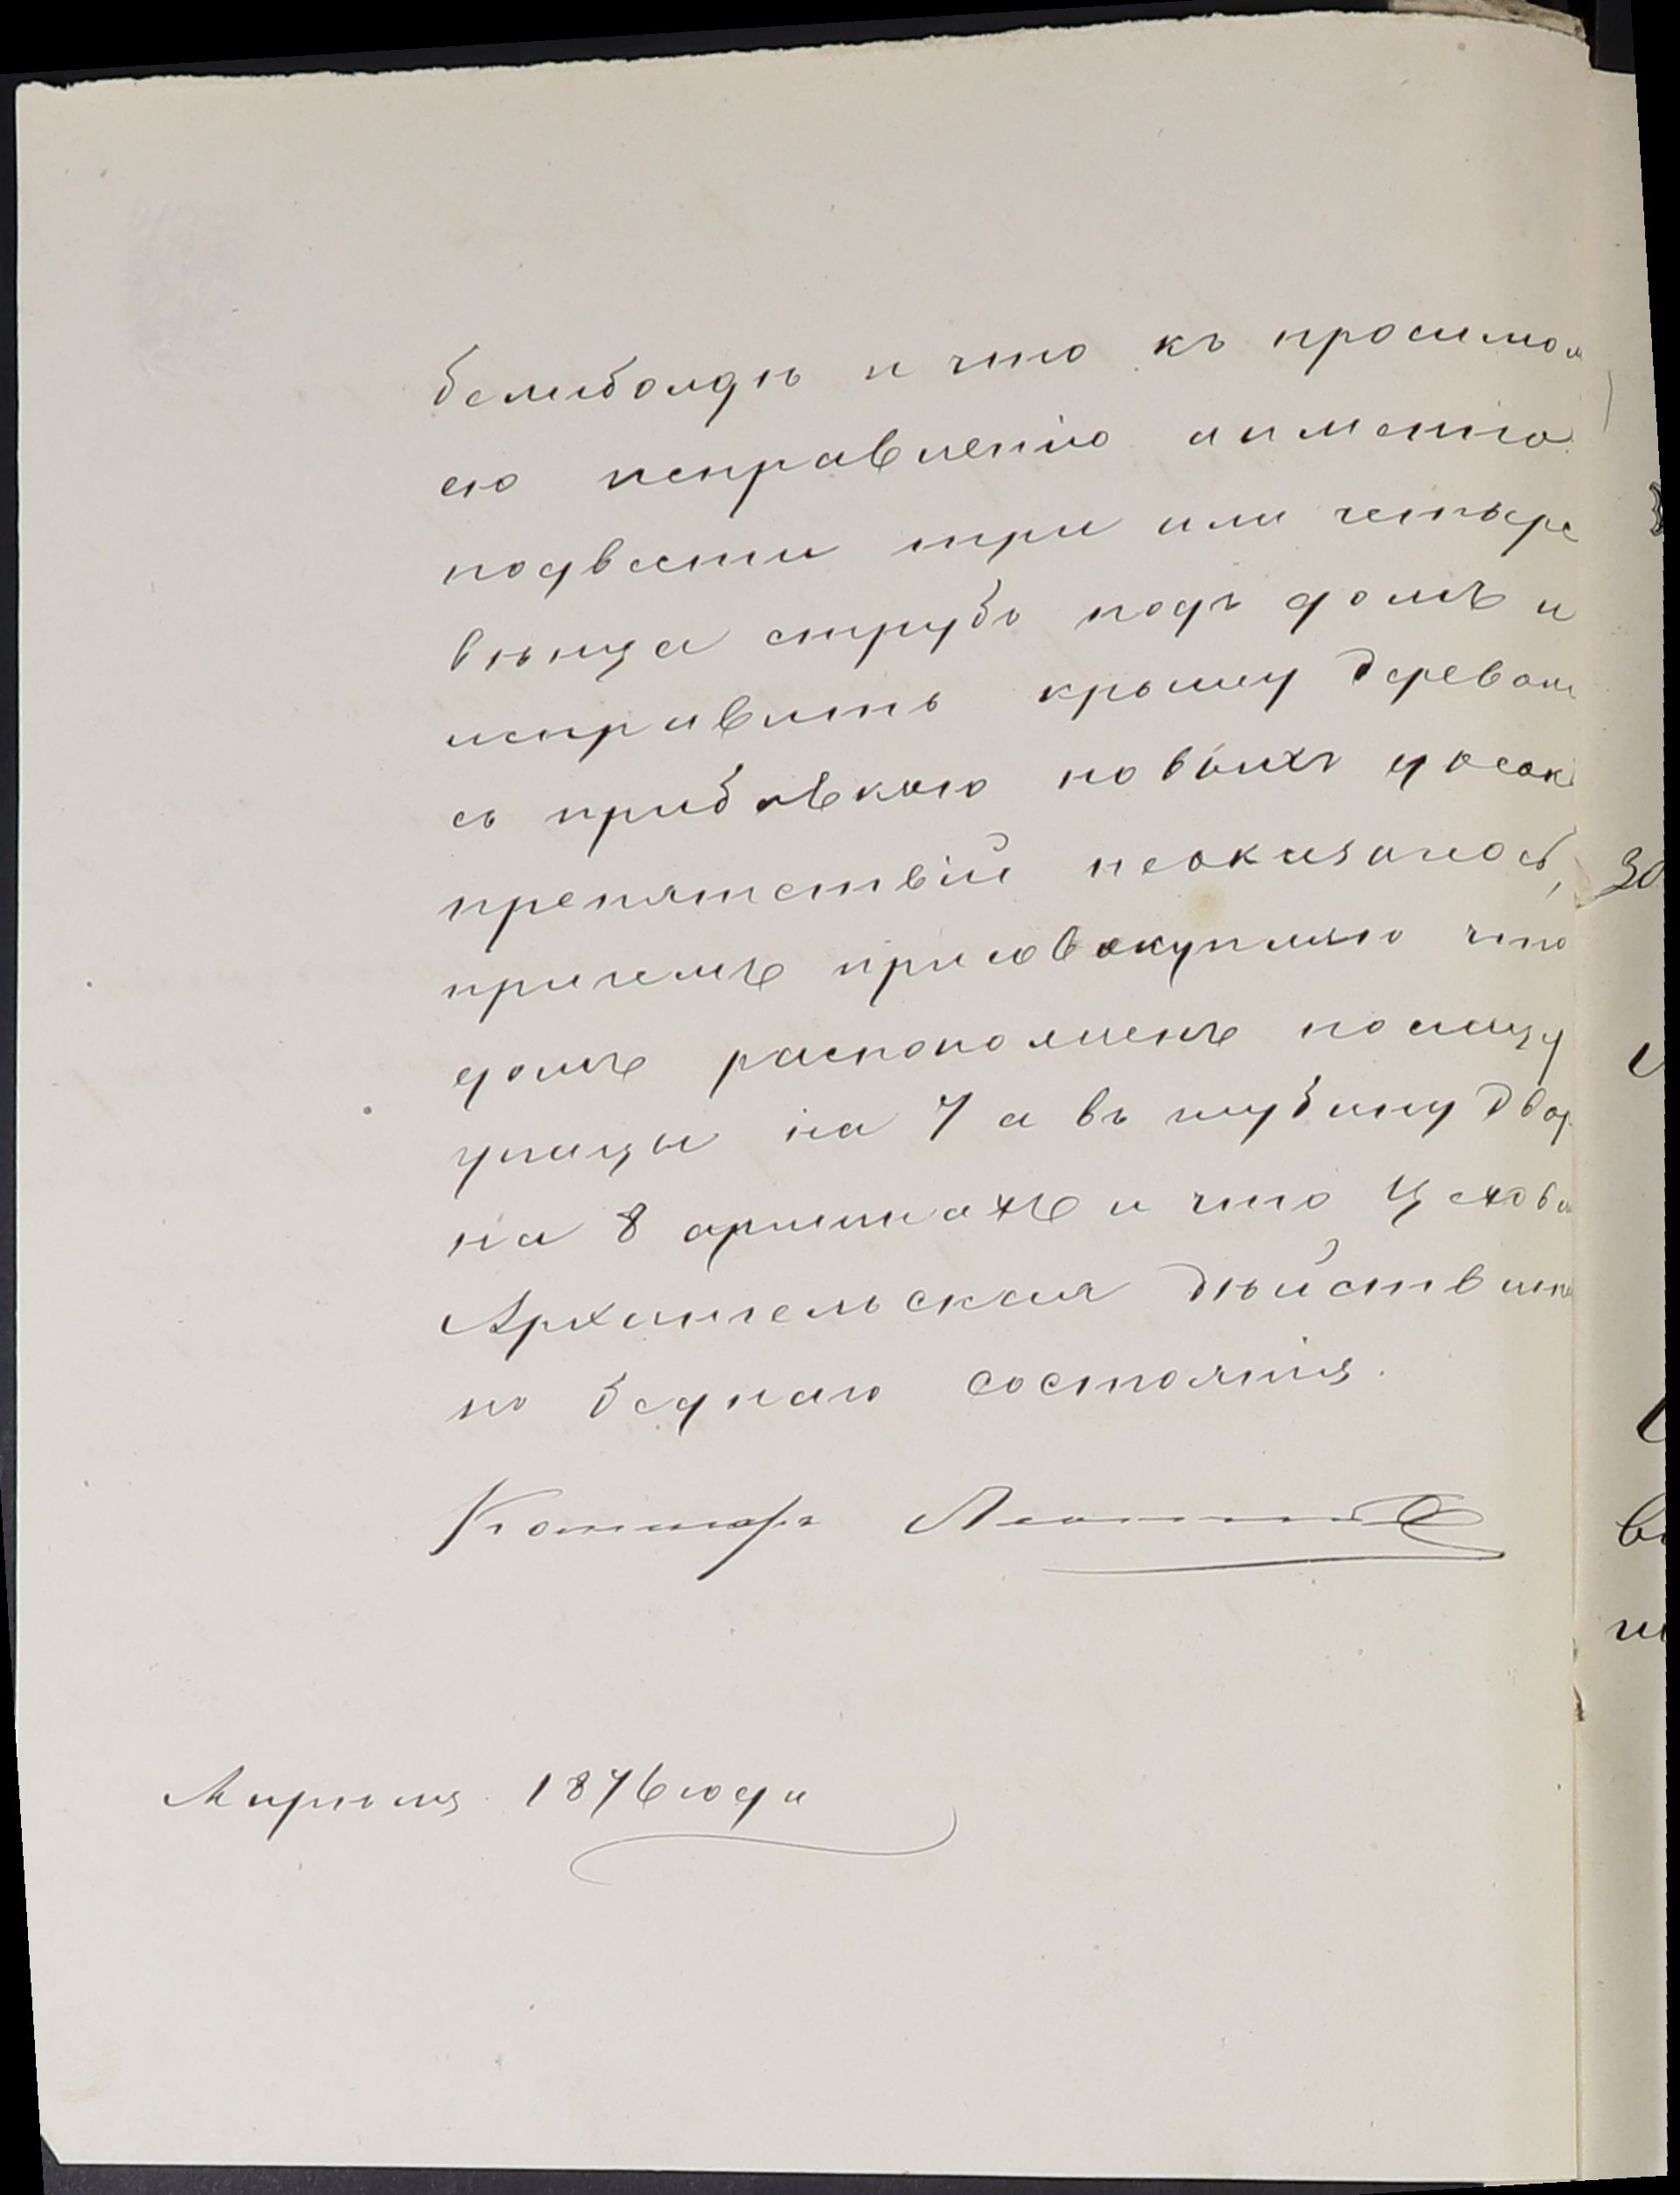 и что къ просимом
ею исправленію аименно
подвести три или четыре
вѣнца струбъ подъ домъ и
исправить крышу деревян
съ прибавкою новыхъ досокъ
препятствій неоказалось,
причемъ присовокупляю что
домъ расположенъ полицу
улицы на 7 а въ глубину двор
на 8 аршинахъ и что Цехова
Архангельская дѣйствите
но беднаго состоянія.
Апрѣля 1876 года
30